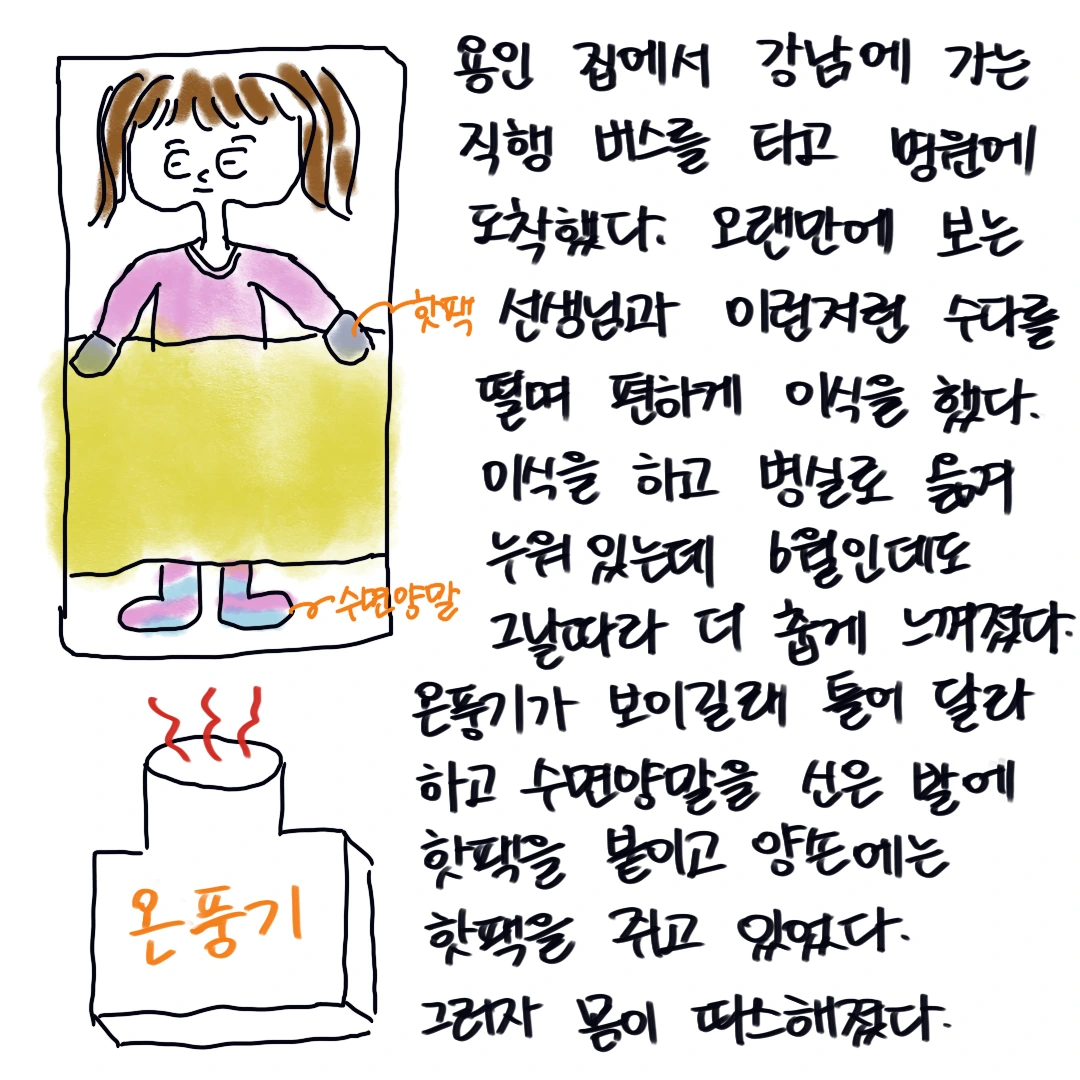 용인 집에서 강남에 가는
직행 버스를 타고 병원에
도착했다. 오랜만에 보는
선생님과 이런저런 수다를
떨며 편하게 이식을 했다.
이식을 하고 병실로 옮겨
누워 있는데 6월인데도
그날따라 더 춥게 느껴졌다.
온풍기가 보이길래 틀어 달라
하고 수면양말을 신은 발에
핫팩을 붙이고 양손에는
핫팩을 쥐고 있었다.
그러자 몸이 따스해졌다.
핫팩
수면양말
온풍기